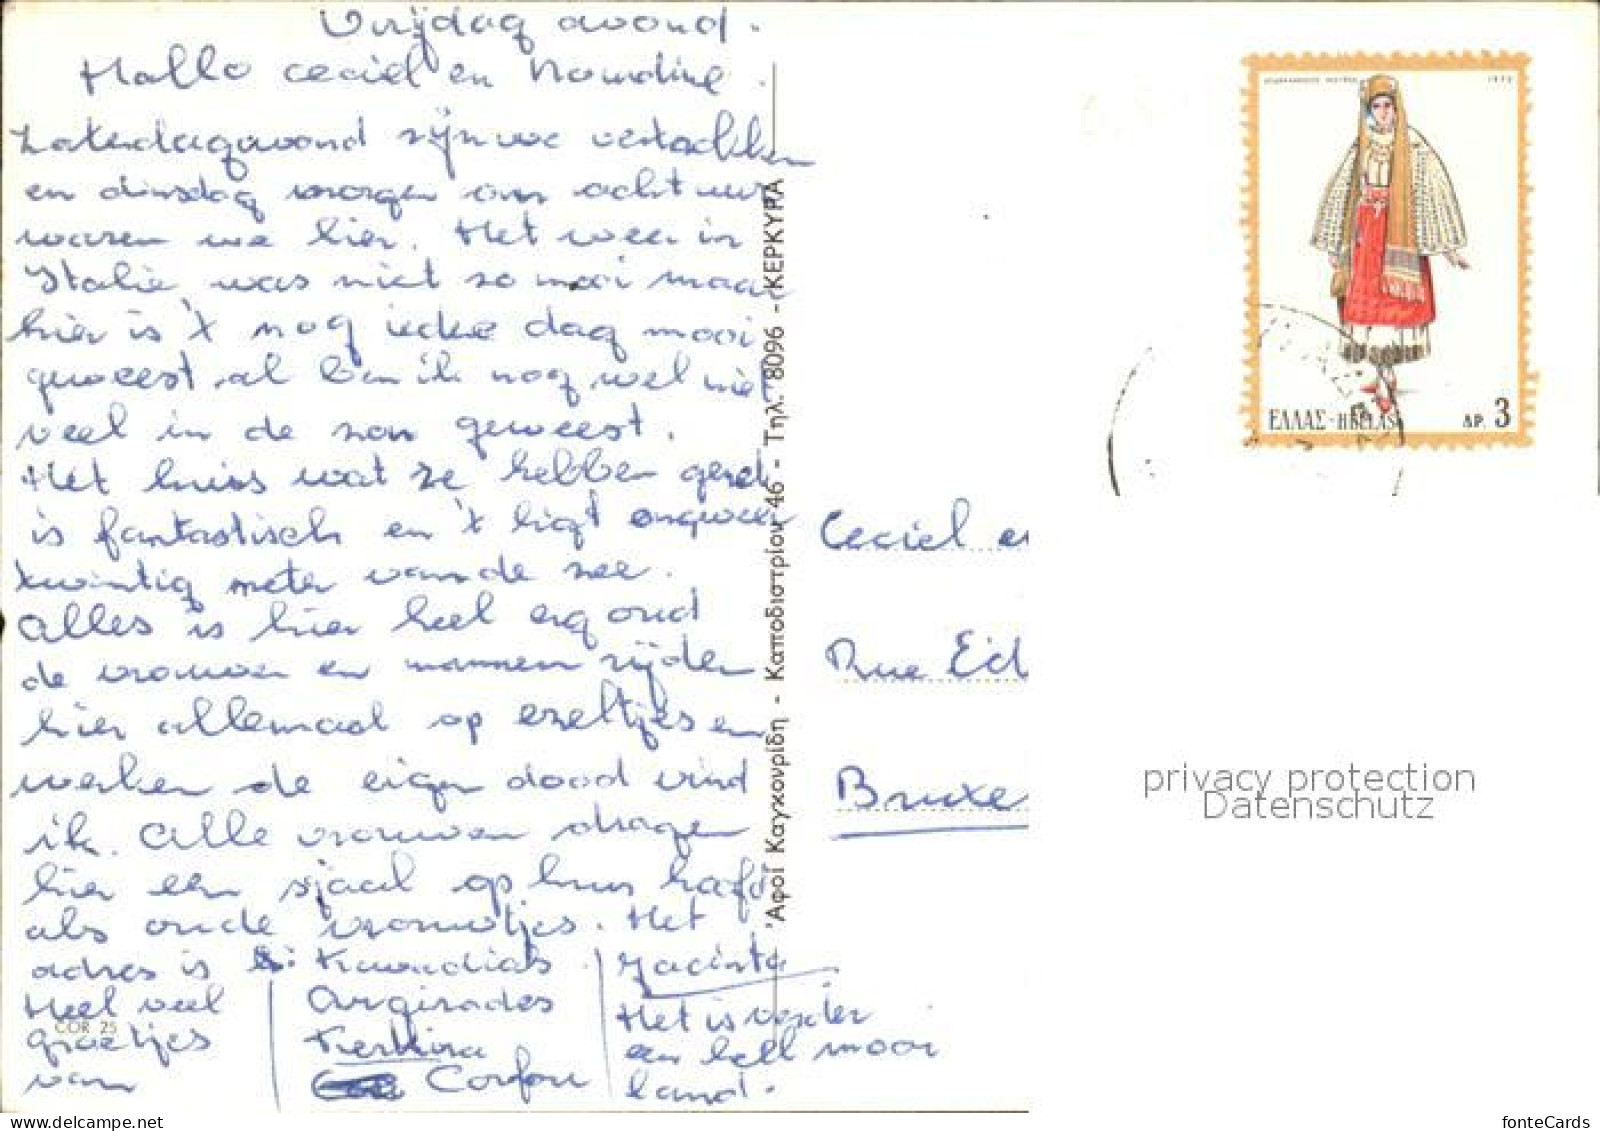 Vrijdag avond.
Hallo Ceciel en Nourdine.
Zaterdagavond zijn we vertrokken
en dinsdag morgen om acht uur
waren we hier. Het weer in
Italië was niet zo mooi maar
hier is 't nog iedere dag mooi
geweest, al ben ik nog wel niet
veel in de zon geweest.
Het huis wat ze hebben
is fantastisch en 't ligt ongeveer
twintig meter van de zee.
Alles is hier heel erg oud
de vrouwen en mannen rijden
hier allemaal op ezeltjes en
werken de eigen dood vind
ik. Alle vrouwen dragen
hier een sjaal op hun hoofd
als oude vrouwtjes. Het
adres is :
Argirades
Kerkira
Corfou
Heel veel
groetjes
van
Jacinta
Het is verder
een heel mooi
land.
COR 25
Ἀφοί Καγκουρίδη - Καποδιστρίου 46 - Τηλ. 8096 - ΚΕΡΚΥΡΑ
1972
ΕΛΛΑΣ - HELLAS
ΔΡ. 3
Ceciel en
Rue Ed
Bruxe
privacy protection
Datenschutz
fonteCards